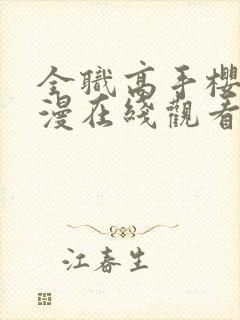 全職高手櫻
漫在綫觀看
江春生